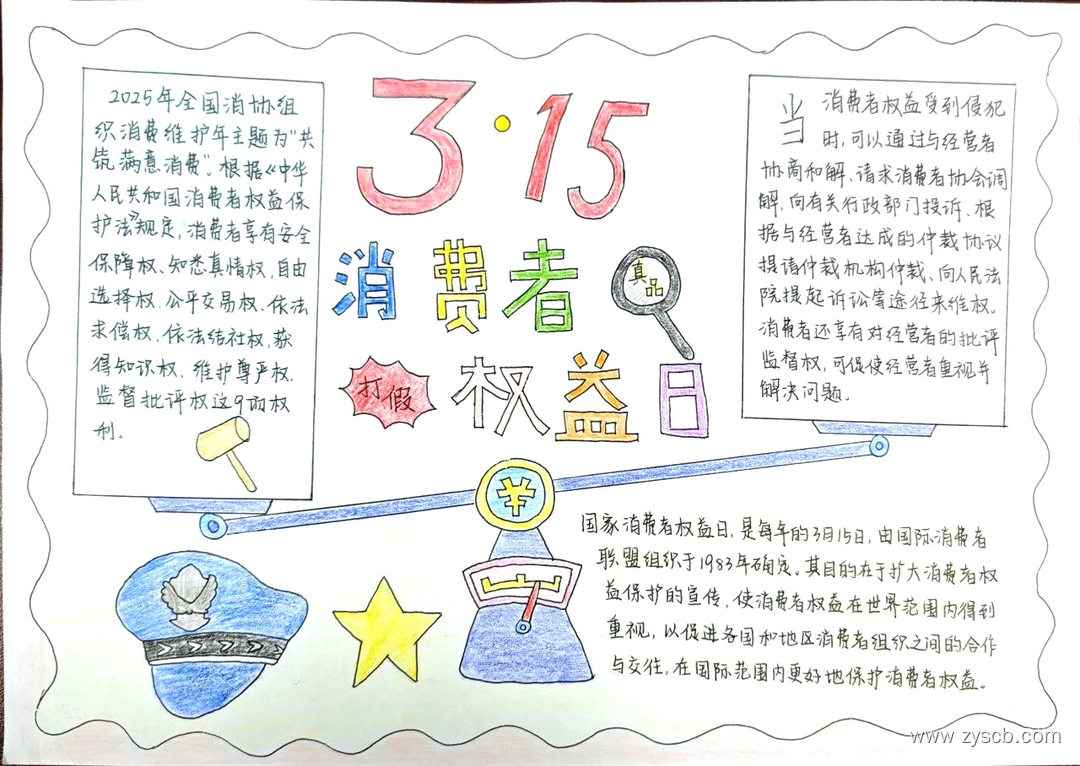 3·15
消费者
真品
打假
权益日
2025年全国消协组
织消费维护年主题为"共
筑满意消费"。根据《中华
人民共和国消费者权益保
护法》规定,消费者享有安全
保障权、知悉真情权,自由
选择权、公平交易权、依法
求偿权、依法结社权,获
得知识权、维护尊严权,
监督批评权这9项权
利。
当消费者权益受到侵犯
时,可以通过与经营者
协商和解、请求消费者协会调
解,向有关行政部门投诉、根
据与经营者达成的仲裁协议
提请仲裁机构仲裁、向人民法
院提起诉讼等途径来维权。
消费者还享有对经营者的批评
监督权,可促使经营者重视并
解决问题。
¥
国家消费者权益日,是每年的3月15日,由国际消费者
联盟组织于1983年确定。其目的在于扩大消费者权
益保护的宣传,使消费者权益在世界范围内得到
重视,以促进各国和地区消费者组织之间的合作
与交往,在国际范围内更好地保护消费者权益。
www.zyscb.com